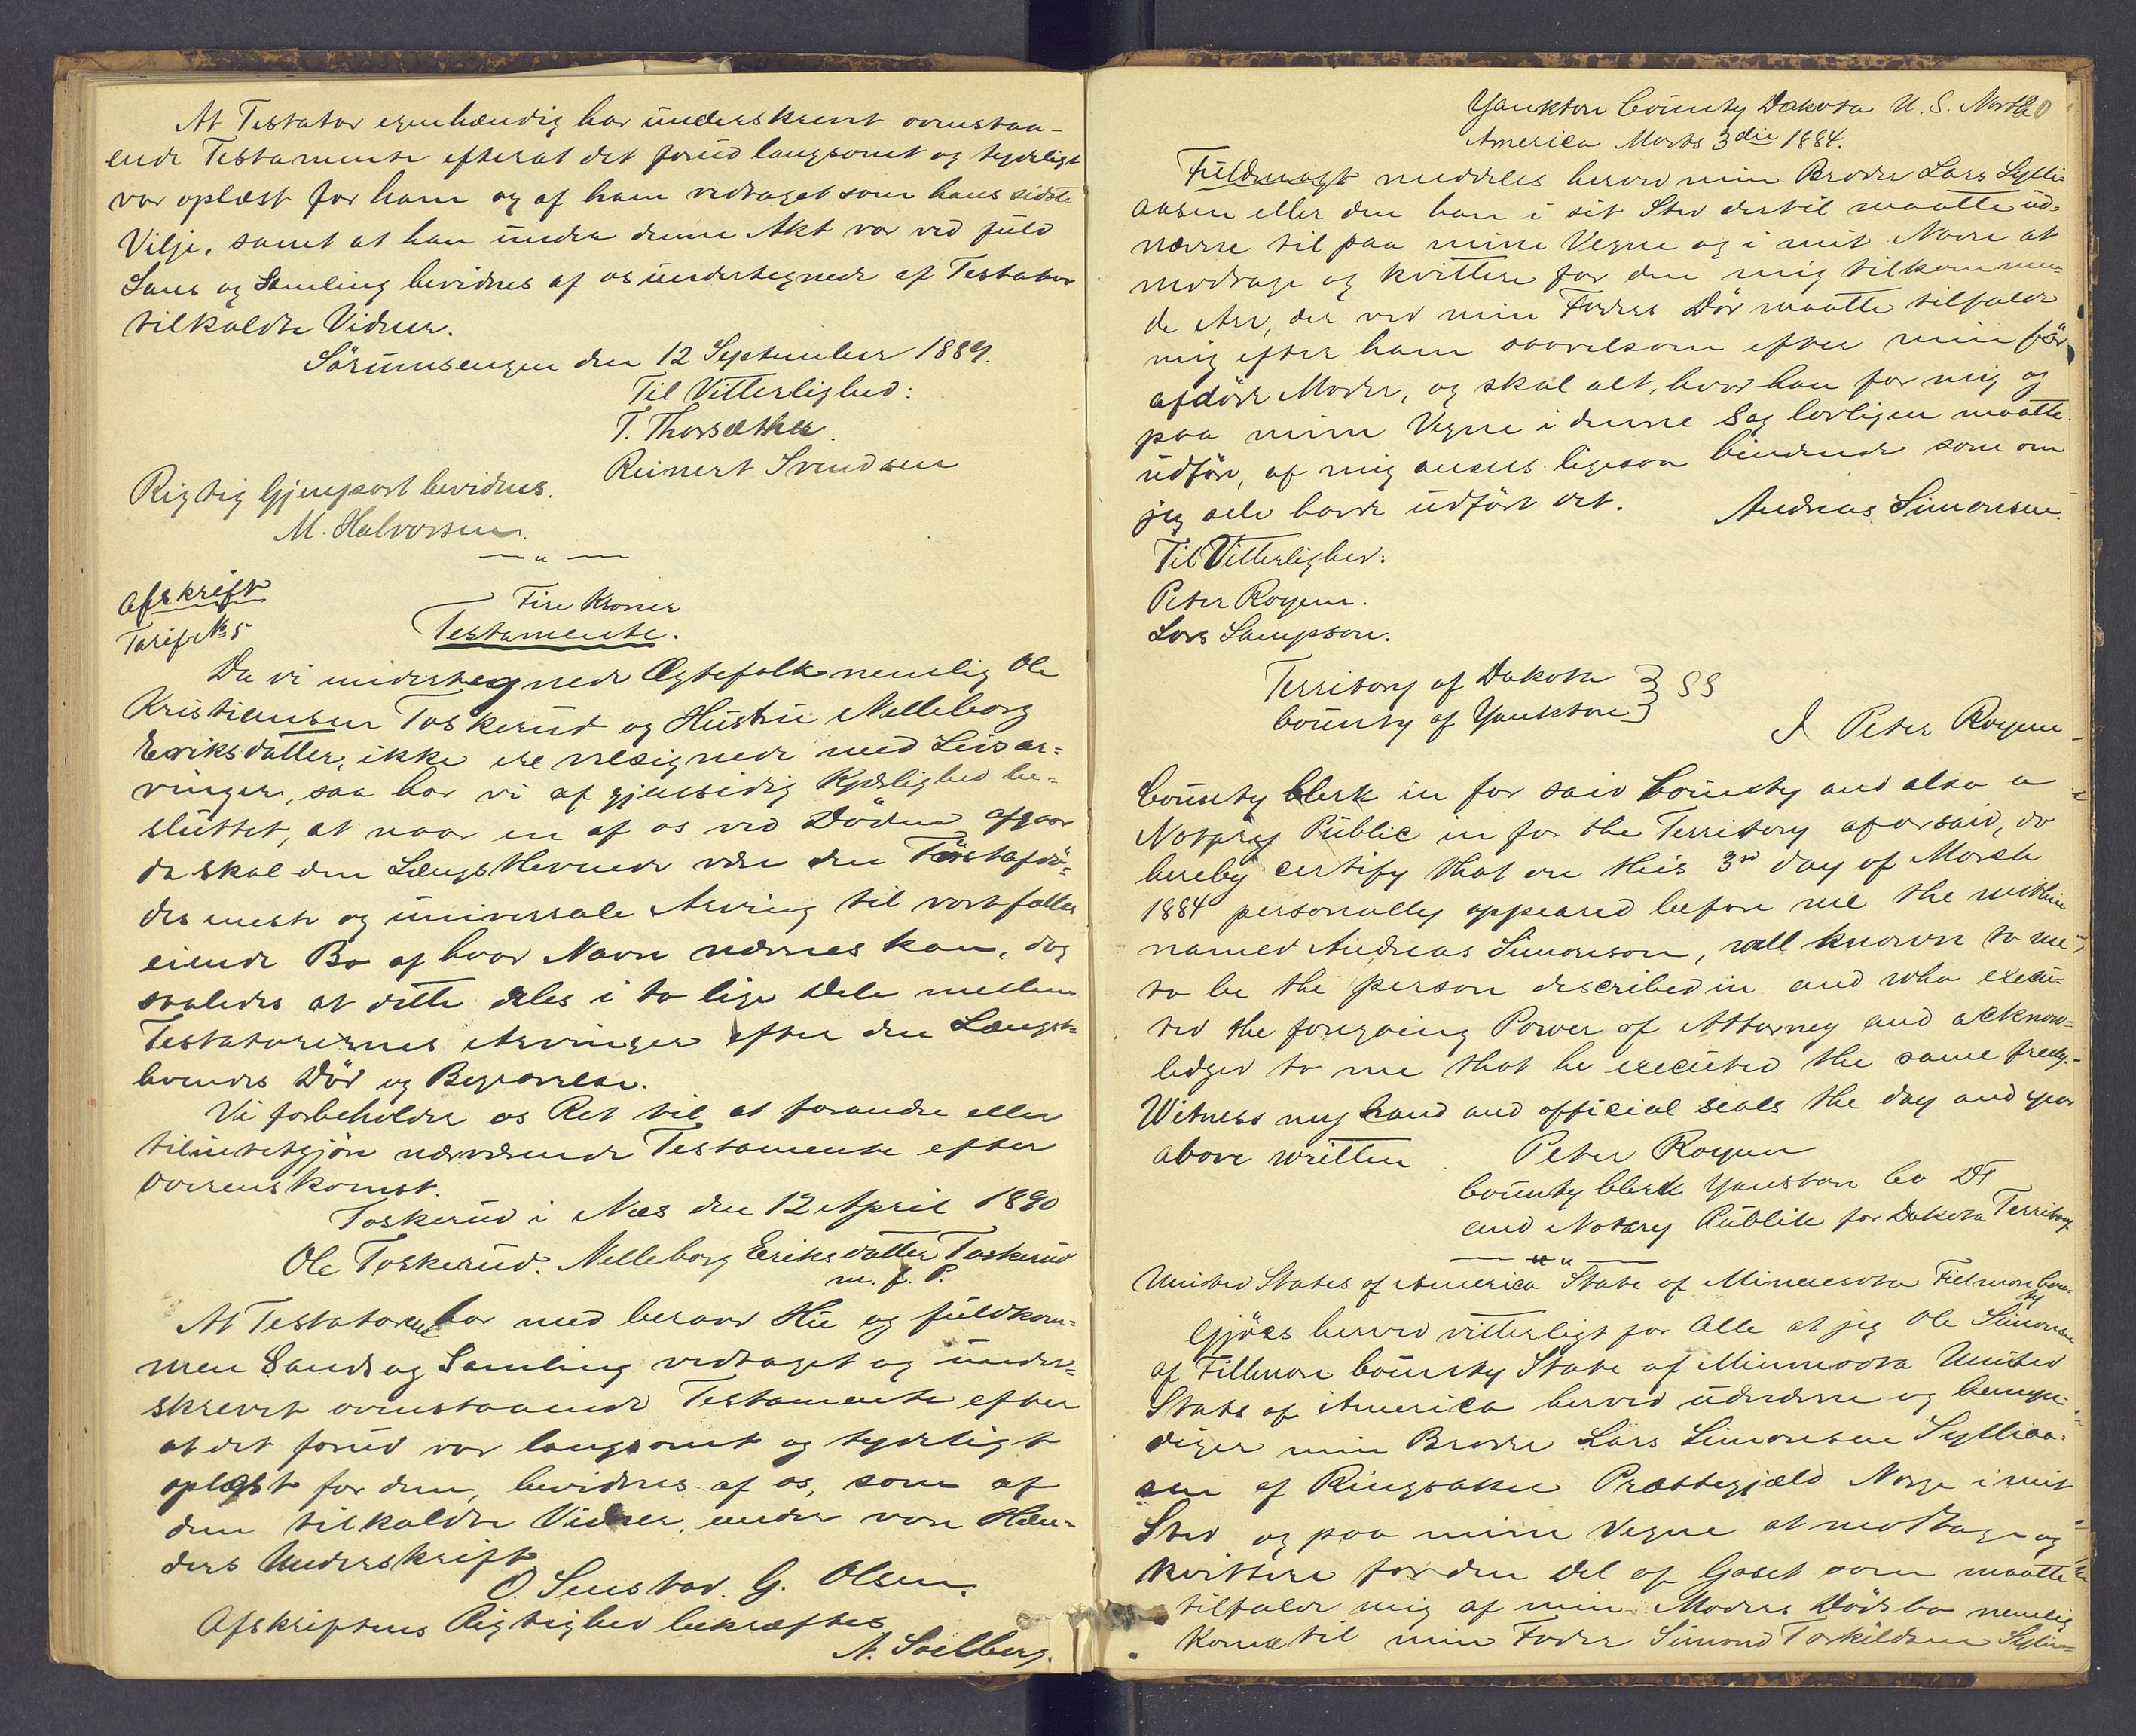 At Testator egenhændig har underskrevet ovenstaa-
ende Testamente efterat det forud langsomt og tydeligt
var oplæst for ham og af ham vedtaget som hans sidste
Vilje, samt at han under denne Akt var ved fuld
Sans og Samling bevidnes af os undertegnede af Testator
tilkaldte Vidner.
Sörumsengen den 12 September 1889.
Til Vitterlighed:
T. Thorsæther.
Reinert Svendsen
Rigtig Gjenpart bevidnes.
M. Halvorsen.
— „ —
Afskrift
Tarif № 5
Fire Kroner
Testamente.
Da vi undertegnede Ægtefolk nemlig Ole
Kristiansen Toskerud og Hustru Nelleborg
Eriksdatter, ikke ere velsignede med Livsar-
vinger, saa har vi af gjensidig Kjærlighed be-
sluttet, at naar en af os ved Döden afgaar
da skal den Længstlevende være den Förstafdö-
des eneste og universale Arving til vort fælles
eiende Bo af hvad Navn nævnes kan, dog
saaledes at dette deles i to lige Dele mellem
Testatorernes Arvinger efter den Længst-
levendes Död og Begravelse.
Vi forbeholder os Ret til at forandre eller
tilintetgjöre nærværende Testamente efter
Overenskomst.
Toskerud i Næs den 12 April 1890
Ole Toskerud. Nelleborg Eriksdatter Toskerud
m. f. P.
At Testatorerne har med beraad Hu og fuldkom-
men Sands og Samling vedtaget og under-
skrevet ovenstaaende Testamente efter
at det forud var langsomt og tydeligt
oplæst for dem, bevidnes af os, som af
dem tilkaldte Vidner, under vore Hæn-
ders Underskrift
O. Senstad. G. Olsen.
Afskriftens Rigtighed bekræftes
A. Soelberg.
Yankton County Dakota U. S. North
20
America Marts 3die 1884.
Fuldmagt meddeles herved min Broder Lars Sylli-
aasen eller den han i sit Sted dertil maatte ud-
nævne til paa mine Vegne og i mit Navn at
modtage og kvittere for den mig tilkommen-
de Arv, der ved min Faders Död maatte tilfalde
mig efter ham saavelsom efter min för
afdöde Moder, og skal alt, hvad han for mig og
paa mine Vegne i denne Sag lovligen maatte
udföre, af mig ansees ligesaa bindende som om
jeg selv havde udfört det. Andreas Simonsen.
Til Vitterlighed:
Peter Royem.
Lars Sampson.
Territory of Dakota } SS
County of Yankton }
I Peter Royem
County Clerk in for said County and also a
Notary Public in for the Territory aforsaid, do
hereby certify that on this 3rd day of March
1884 personally appeared before me the within
named Andreas Simonson, well known to me
to be the person described in and who execu-
ted the foregoing Power of Attorney and acknow-
ledged to me that he executed the same freely.-
Witness my hand and official seals the day and year
above written Peter Royem
County Clerk Yanston Co DT
and Notary Publik for Dakota Territory
— „ —
United States of America State of Minnesota Filmore Coun-
ty
Gjöres herved vitterligt for Alle at jeg Ole Simonsen
af Fillmore County State of Minnesota United
States of America herved udnævne og bemyn-
diger min Broder Lars Simonsen Sylliaa-
sen af Ringsaker Præstegjæld Norge i mit
Sted og paa mine Vegne at modtage og
kvittere for den Del af Godset som maatte
tilfalde mig af min Moders Dödsbo nemlig
Kone til min Fader Simond Torkildsen Syllia-